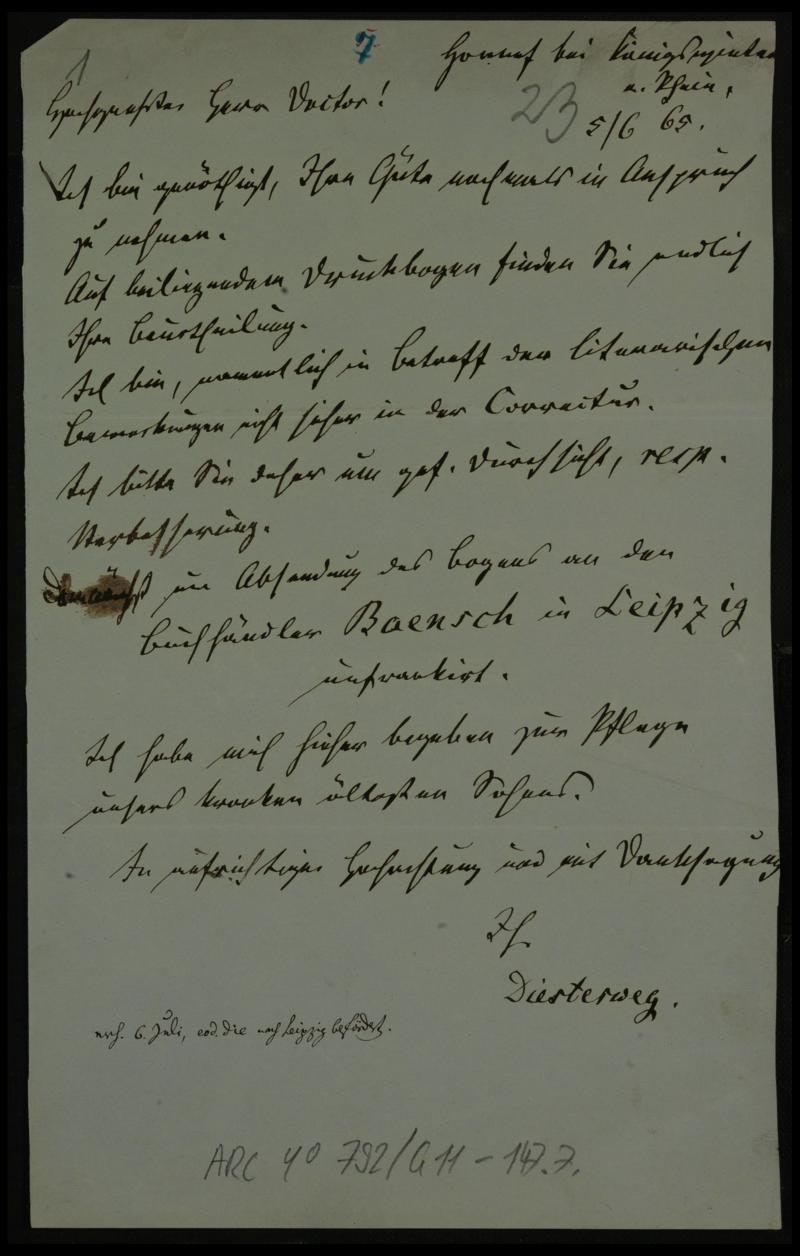 7
1
Honnef bei Königswinter
a. Rhein,
23
5/6 65.
Hochgeehrter Herr Doctor!
Ich bin genöthigt, Ihre Güte nochmals in Anspruch
zu nehmen.
Auf beiliegendem Druckbogen finden Sie endlich
Ihre Beurtheilung.
Ich bin, namentlich in Betreff der literarischen
Bemerkungen nicht sicher in der Correctur.
Ich bitte Sie daher um gef. Durchsicht, resp.
Verbesserung.
Demnächst um Absendung des Bogens an den
Buchhändler Baensch in Leipzig
unfrankirt.
Ich habe mich hieher begeben zur Pflege
unsers kranken ältesten Sohnes.
In aufrichtiger Hochachtung und mit Danksagung
Ihr
Diesterweg.
erh. 6. Juli, eod. die nach Leipzig befördert.
ARC 4° 792/G11-147.7.